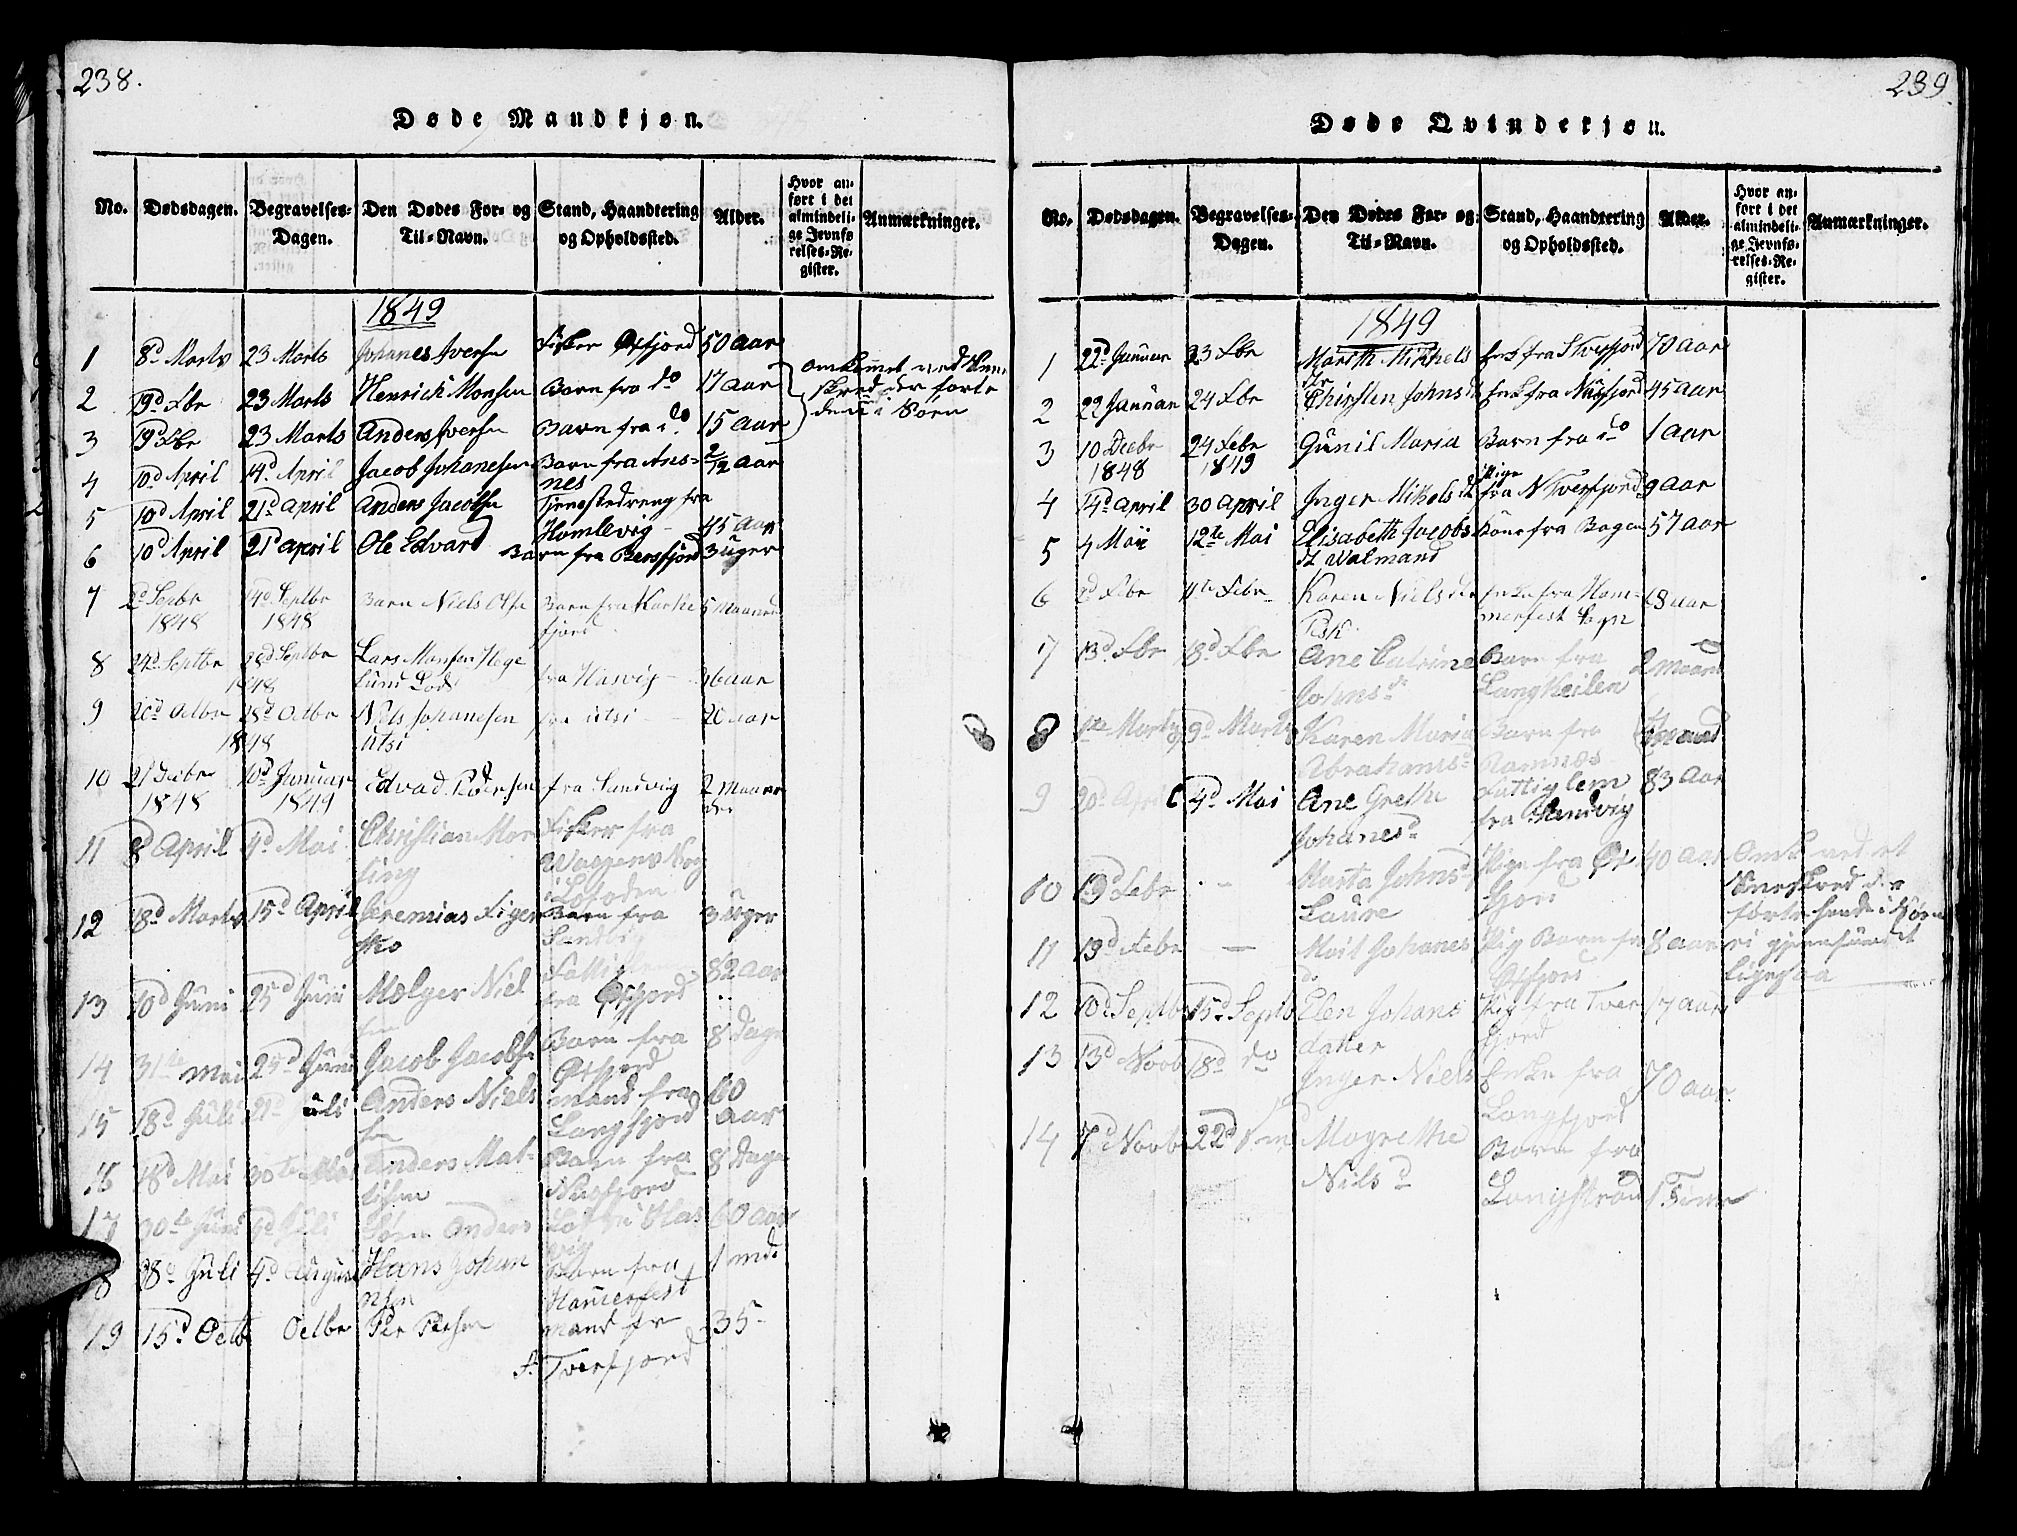 238.
Døde Mandkjøn.
No. Dødsdagen. Begravelses-Dagen. Den Dødes For- og Til-Navn. Stand, Haandtering og Opholdssted. Alder. Hvor anført i det almindelige Jevnførelses-Register. Anmærkninger.
1849
1 8d Marts 23 Marts Johanes Iversen Fisker Øxfjord 50 Aar
2 19d Fbr 23 Marts Henrich Monsen Barn fra do 17 Aar
omkomet ved Snee
skred der førte
dem i Søen
3 19d Fbr 23 Marts Anders Iversen Barn fra do 15 Aar
4 10d April 14d April Jacob Johanesen Barn fra Ans=
nes 2/12 Aar
5 10d April 21d April Anders Jacobsen Tjenestedreng fra
Homlevig 45 Aar
6 10d April 21d April Ole Edvard Barn fra Bersfjord 3 uger
7 2d Sepbr 14d Septbr Barn Niels Olsen Barn fra Korsfjord 5 Maaned
1848 1848
8 24d Septbr 28d Septbr Lars Monsen Hege
1848 lund Lods fra Hasvig 36 Aar
9 20d Octbr 28d Octbr Nils Johanesen fra Utsi 20 Aar
1848 Utsi
10 21 Decbr 10d Januar Edvad Pedersen fra Sandvig 2 Maane
1848 1849 der
11 8d April 4d Mai Christian Mor
sing Fisker fra
i Lofoden
12 18d Marts 15d April Jeremias Figen
sko Barn fra
Sandvig 3 uger
13 10d Juni 25d Juni Mølger Niel
sen
fra Øxfjord 82 Aar
14 31te Mai 25d Juni Jacob Jacobsen Barn fra
Øxfjord 8 Dage
15 18d Juli 21d Juli Anders Niels
sen Mand fra
Langfjord 60
Aar
16 18d Mai 30te Mai Anders Mat-
hisen Barn fra
Nusfjord 8 Dage
17 30te Juni Juli Søren Anders Has
vig 60 Aar
18 18d Juli 4d August Hans Johan
nsen Barn fra
Hamerfest 1 md
19 15d Octb Octbr Per Persen Mand fr
S. Tverfjord 35-
239.
Døde Qvindekjøn.
No. Dødsdagen. Begravelses-Dagen. Den Dødes For- og Til-Navn. Stand, Haandtering og Opholdssted. Alder. Hvor anført i det almindelige Jevnførelses-Register. Anmærkninger.
1849
1 22d Januar 23 Fbr Marith Mikkels
dr Enk fra S Tverfjord 70 Aar
2 22 Januar 24 Fbr Chirsten Johns d Enk fra Nusfjord 45 Aar
3 10 Decbr 24 Febr Gunil Maria Barn fra do 1 Aar
1848 1849
4 14d April 30 April Inger Mikels d Pige
fra N Tverfjord 9 Aar
5 4 Mai 12te Mai Elisabeth Jacobs
d Walmand Kone fra Bogen 57 Aar
6 2d Febr 11te Febr Karen Niels dr
Pesk Enke fra Ham
merfest Sogn 68 Aar
7 13d Fbr 18d Fbr Ane Catrine
Johns d Barn fra
Langkeilen 2 Maaned
8 1te Marts 9d Marts Karen Maria
Abrahams d Barn fra
Aamnæs Maaned
9 20d April 4d Mai Ane Grethe
Johanes d Fattiglem
fra Sandvig 83 Aar
10 19d Febr - Marta Johns d
Laure Pige fra Øx
fjord 40 Aar Omk ved et
Sneeskred der
førte hende i Søen
ei gjenfundet
11 19d Febr - Marit Johanes
d. Pig Barn fr
Øxfjord 8 Aar ligesaa
12 10d Septbr 15d Septb Elen Johans
datter Pig fra Tver
fjord 17 Aar
13 13d Novb 18d do Inger Niels Enke fra
Langfjord 70 Aar
14 7d Novb 22d Magrethe
Niels d Barn fra
Langstrand 1 Time